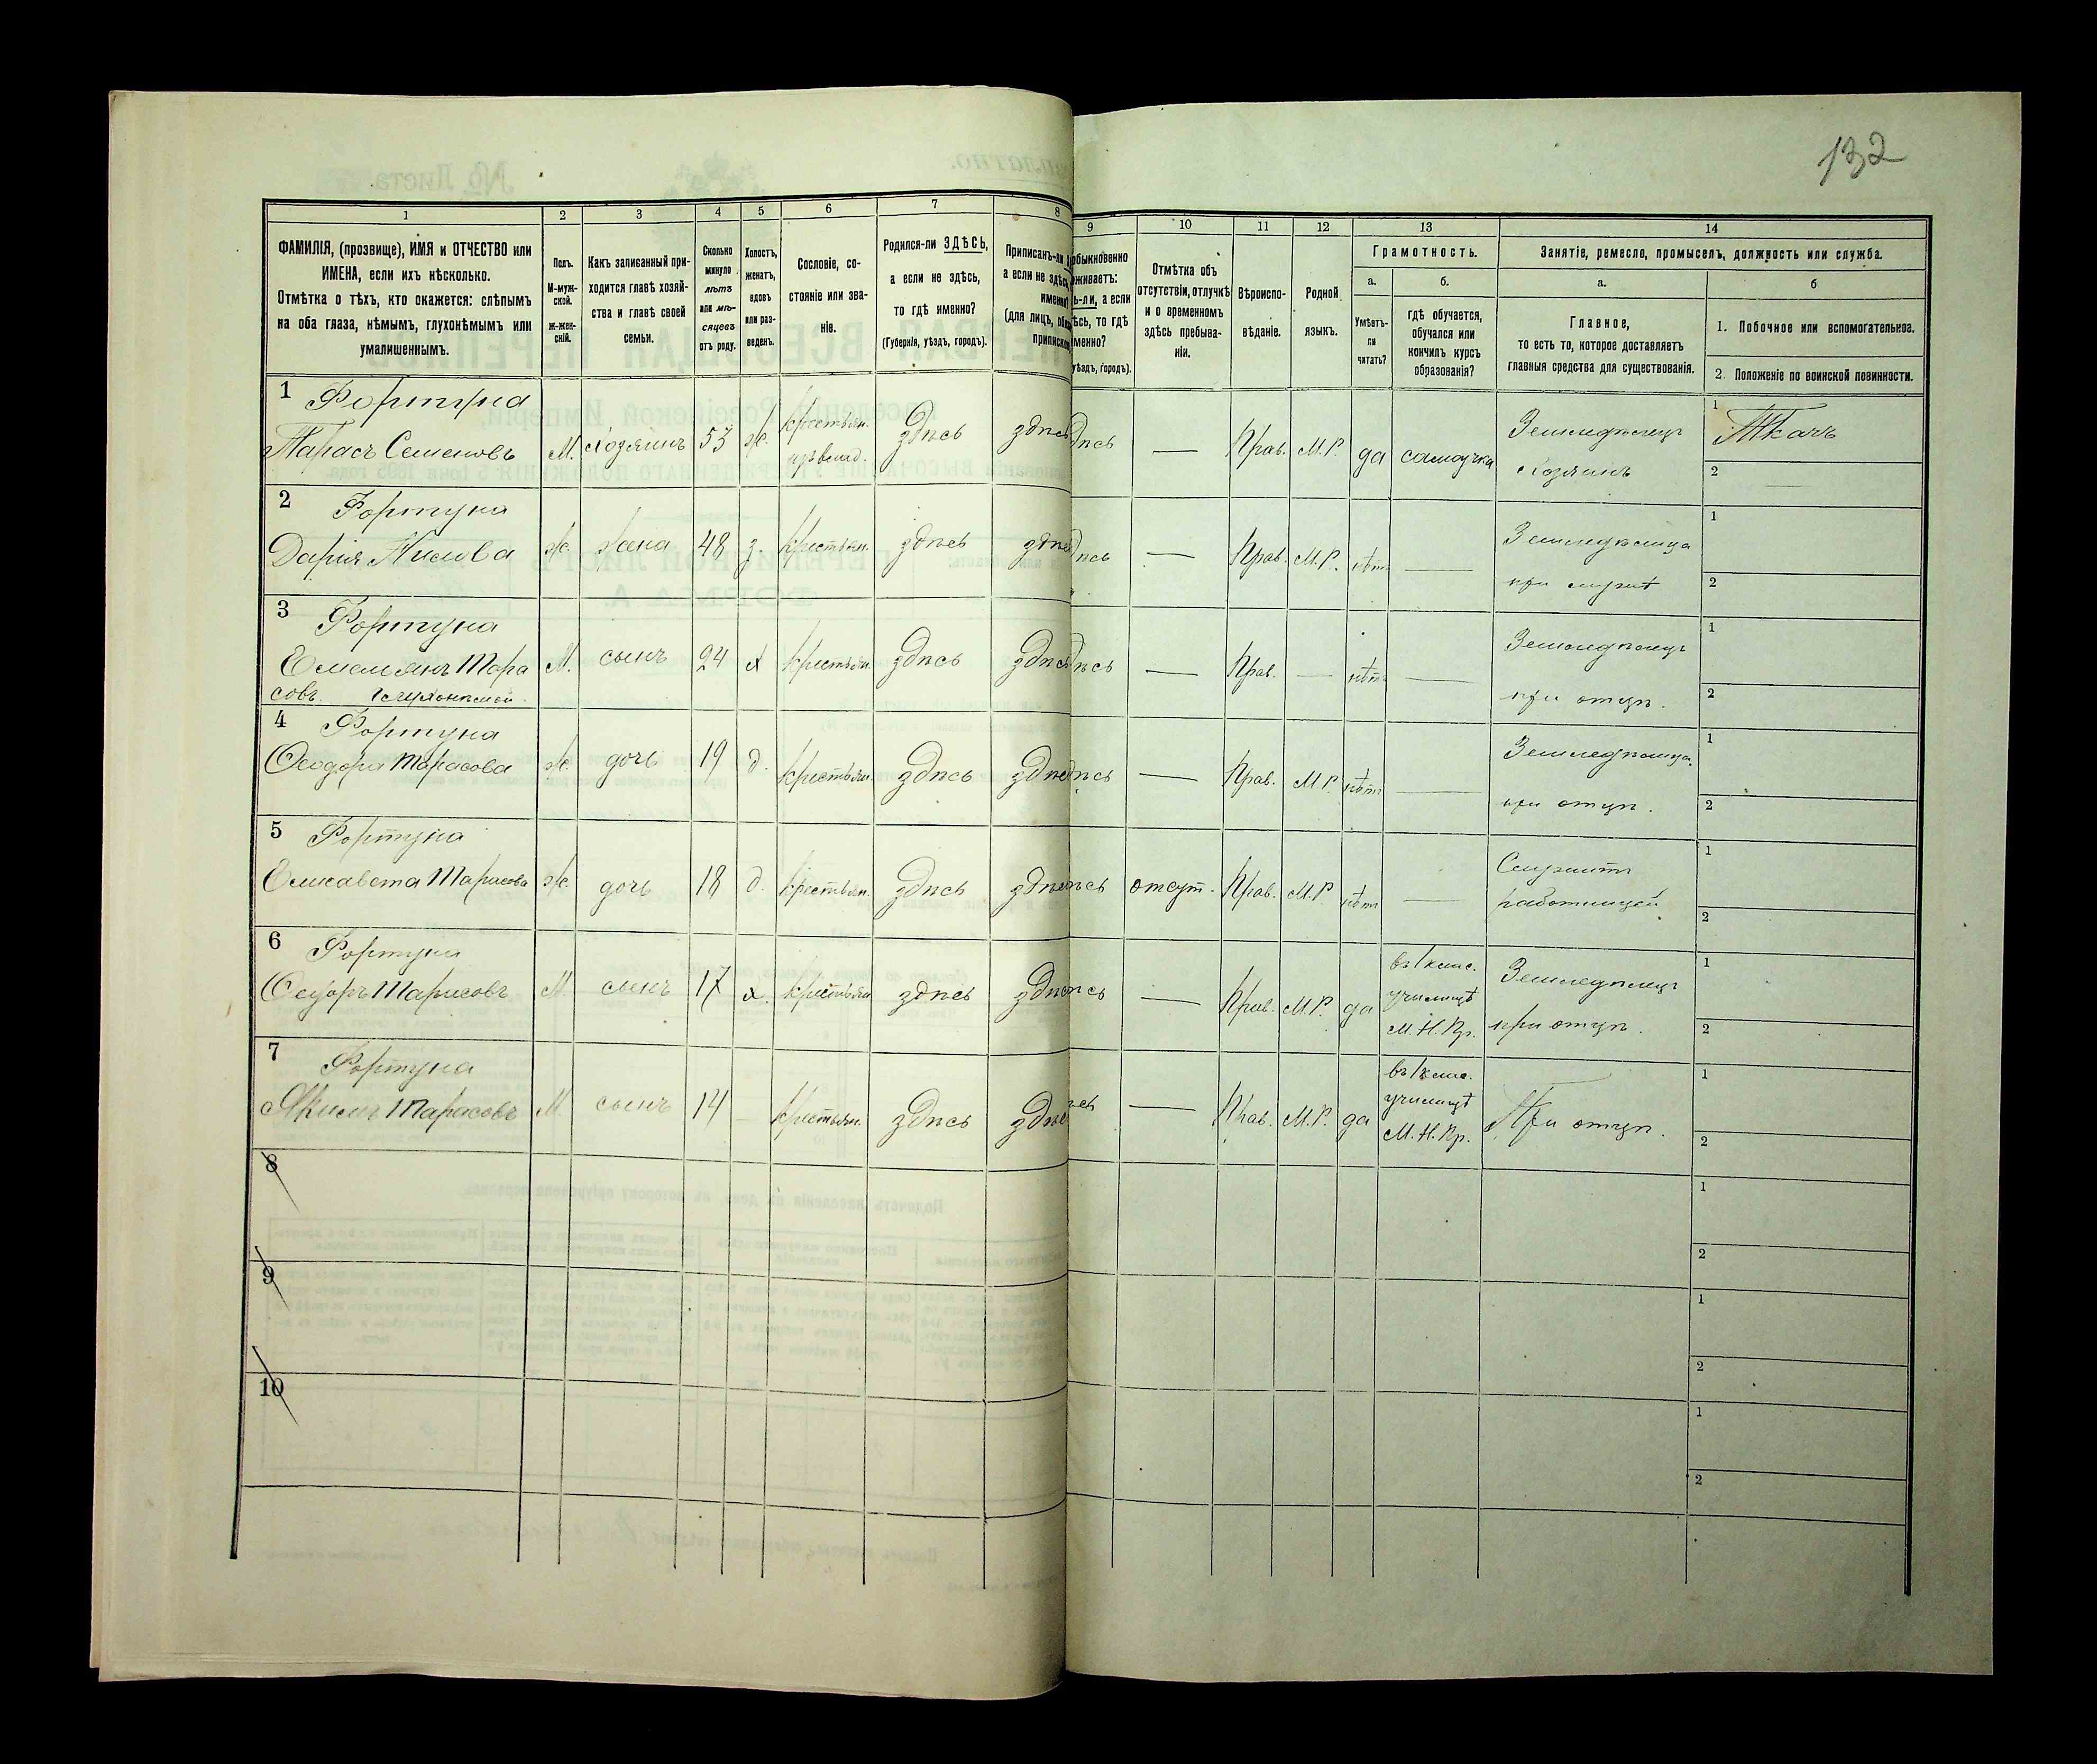 132
1
2
3
4
5
6
7
8
9
10
11
12
13
14
ФАМИЛІЯ, (прозвище), ИМЯ и ОТЧЕСТВО или
ИМЕНА, если ихъ нѣсколько.
Отмѣтка о тѣхъ, кто окажется: слѣпымъ
на оба глаза, нѣмымъ, глухонѣмымъ или
умалишеннымъ.
Полъ.
М-муж-
ской.
ж-жен-
скій.
Какъ записанный при-
ходится главѣ хозяй-
ства и главѣ своей
семьи.
Сколько
минуло
лѣтъ
или мѣ-
сяцевъ
отъ роду.
Холостъ,
женатъ,
вдовъ
или раз-
веденъ.
Сословіе, со-
стояніе или зва-
ніе.
Родился-ли ЗДѢСЬ,
а если не здѣсь,
то гдѣ именно?
(Губернія, уѣздъ, городъ).
Приписанъ-ли
а если не здѣсь,
именно?
(для лицъ,
приписк
обыкновенно
живаетъ:
ь-ли, а если
ѣсь, то гдѣ
менно?
уѣздъ, городъ).
Отмѣтка объ
отсутствіи, отлучкѣ
и о временномъ
здѣсь пребыва-
ніи.
Вѣроиспо-
вѣданіе.
Родной
языкъ.
Грамотность.
а.
Умѣетъ-
ли
читать?
б.
гдѣ обучается,
обучался или
кончилъ курсъ
образованія?
Занятіе, ремесло, промыселъ, должность или служба.
а.
Главное,
то есть то, которое доставляетъ
главныя средства для существованія.
б
1. Побочное или вспомогательное.
2. Положеніе по воинской повинности.
1 Фортуна
Тарасъ Семеновъ М. хозяинъ 53 ж. крестьян. здѣсь здѣсь — Прав. М.Р. да самоучка Земледѣлецъ
хозяинъ
1 Ткачъ
2 —
2 Фортуна
Дарія Нилова ж. жена 48 з. крестьян. здѣсь здѣсь — Прав. М.Р. нѣт — Земледѣлица
при мужѣ
1
2
3 Фортуна
Емельянъ Тара М. сынъ 24 х крестьян. здѣсь здѣсь — Прав. — нѣт — Земледѣлецъ
совъ. Глухонѣмой. при отцѣ.
1
2
4 Фортуна
Ѳеодора Тарасова ж. дочь 19 д. крестьян. здѣсь здѣсь — Прав. М.Р. нѣт — Земледѣлица
при отцѣ.
1
2
5 Фортуна
Елисавета Тарасова ж. дочь 18 д. крестьян. здѣсь здѣсь отсут. Прав. М.Р. нѣт — Служитъ
работницей
1
2
6 Фортуна
Ѳедоръ Тарасовъ М. сынъ 17 х. крестьян. здѣсь здѣсь — Прав. М.Р. да въ 1 клас.
училищѣ
М.Н.Пр. Земледѣлецъ
при отцѣ.
1
2
7 Фортуна
Якимъ Тарасовъ М. сынъ 14 — крестьян. здѣсь здѣсь — Прав. М.Р. да въ 1 клас.
училищѣ
М.Н.Пр. При отцѣ.
1
2
8
1
2
9
1
2
10
1
2